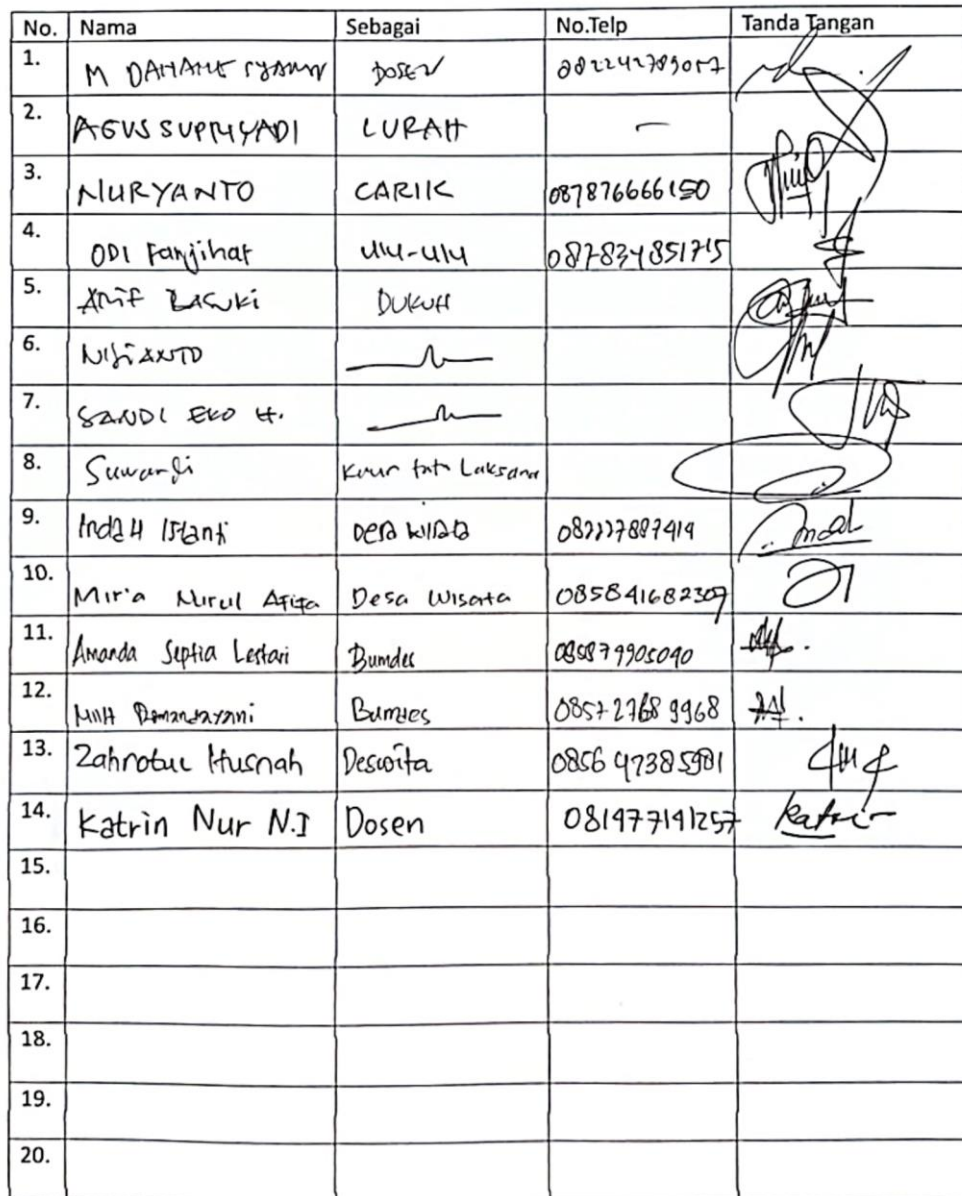 No. Nama Sebagai No.Telp Tanda Tangan
1. M DOSEN
2. AGUS SUPRIYADI LURAH -
3. NURYANTO CARIK 087876666150
4. ODI Fanjihat ulu-ulu 087834851715
5. Arif Basuki DUKUH
6.
7. SANDI EKO H.
8. Suwardi Kaur tata Laksana
9. Indah Istanti Desa wisata
10. Miria Nurul Afifa Desa Wisata 085841682307
11. Amanda Septia Lestari Bumdes 085879905090
12. Bumdes 085727689968
13. Zahrotul Husnah Deswita 085647385981
14. Katrin Nur N.I Dosen 081977191257 Katrin
15.
16.
17.
18.
19.
20.